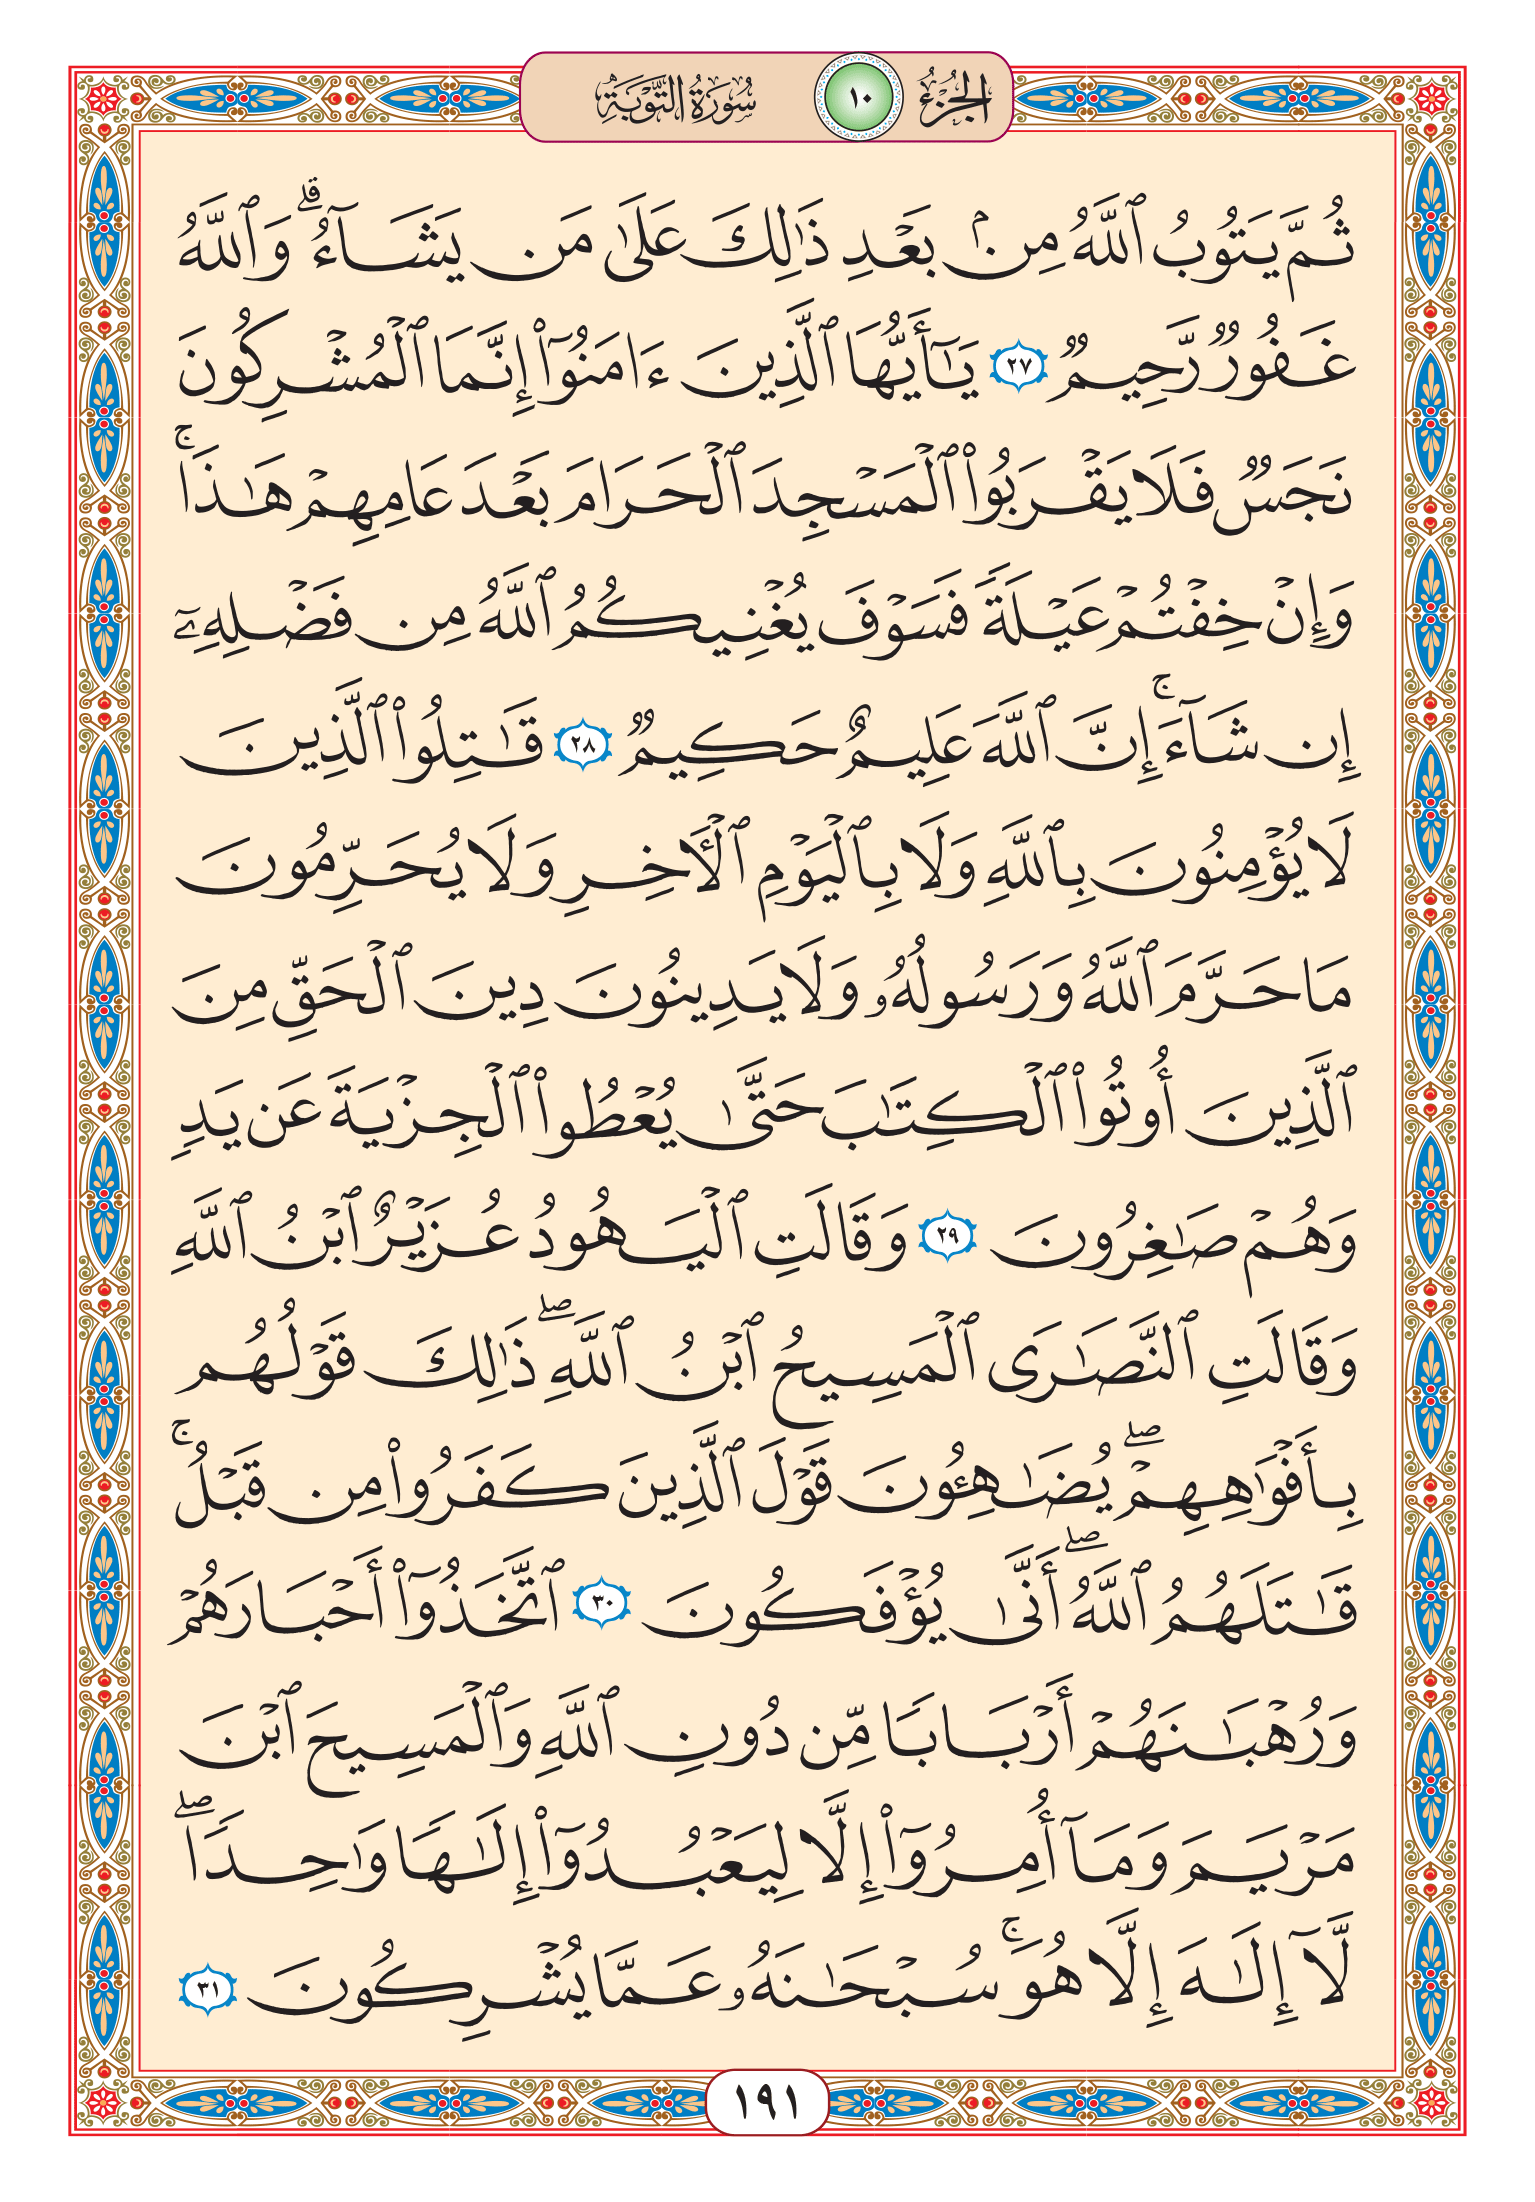 الجزء ١٠ سورة التوبة
ثُمَّ يَتُوبُ ٱللَّهُ مِنۢ بَعْدِ ذَٰلِكَ عَلَىٰ مَن يَشَآءُ ۗ وَٱللَّهُ
غَفُورٌ رَّحِيمٌ ٢٧ يَـٰٓأَيُّهَا ٱلَّذِينَ ءَامَنُوٓا۟ إِنَّمَا ٱلْمُشْرِكُونَ
نَجَسٌ فَلَا يَقْرَبُوا۟ ٱلْمَسْجِدَ ٱلْحَرَامَ بَعْدَ عَامِهِمْ هَـٰذَا ۚ
وَإِنْ خِفْتُمْ عَيْلَةً فَسَوْفَ يُغْنِيكُمُ ٱللَّهُ مِن فَضْلِهِۦٓ
إِن شَآءَ ۚ إِنَّ ٱللَّهَ عَلِيمٌ حَكِيمٌ ٢٨ قَـٰتِلُوا۟ ٱلَّذِينَ
لَا يُؤْمِنُونَ بِٱللَّهِ وَلَا بِٱلْيَوْمِ ٱلْـَٔاخِرِ وَلَا يُحَرِّمُونَ
مَا حَرَّمَ ٱللَّهُ وَرَسُولُهُۥ وَلَا يَدِينُونَ دِينَ ٱلْحَقِّ مِنَ
ٱلَّذِينَ أُوتُوا۟ ٱلْكِتَـٰبَ حَتَّىٰ يُعْطُوا۟ ٱلْجِزْيَةَ عَن يَدٍ
وَهُمْ صَـٰغِرُونَ ٢٩ وَقَالَتِ ٱلْيَهُودُ عُزَيْرٌ ٱبْنُ ٱللَّهِ
وَقَالَتِ ٱلنَّصَـٰرَى ٱلْمَسِيحُ ٱبْنُ ٱللَّهِ ۖ ذَٰلِكَ قَوْلُهُم
بِأَفْوَٰهِهِمْ ۖ يُضَـٰهِـُٔونَ قَوْلَ ٱلَّذِينَ كَفَرُوا۟ مِن قَبْلُ ۚ
قَـٰتَلَهُمُ ٱللَّهُ ۖ أَنَّىٰ يُؤْفَكُونَ ٣٠ ٱتَّخَذُوٓا۟ أَحْبَارَهُمْ
وَرُهْبَـٰنَهُمْ أَرْبَابًا مِّن دُونِ ٱللَّهِ وَٱلْمَسِيحَ ٱبْنَ
مَرْيَمَ وَمَآ أُمِرُوٓا۟ إِلَّا لِيَعْبُدُوٓا۟ إِلَـٰهًا وَٰحِدًا ۖ
لَّآ إِلَـٰهَ إِلَّا هُوَ ۚ سُبْحَـٰنَهُۥ عَمَّا يُشْرِكُونَ ٣١
١٩١